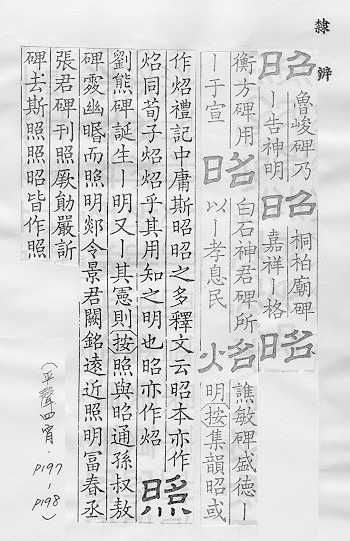 隸辨
昭
魯峻碑乃
｜告神明
昭
桐柏廟碑
嘉祥｜格
衡方碑用
｜于宣
昭
白石神君碑所
以｜孝息民
炤
譙敏碑盛德｜
明按集韻昭或
作炤禮記中庸斯昭昭之多釋文云昭本亦作
炤同荀子炤炤乎其用知之明也昭亦作炤
照
劉熊碑誕生｜明又｜其憲則按照與昭通孫叔敖
碑幽而照明郯令景君闕銘遠近照明富春丞
張君碑刊照厥勛嚴訢
碑去斯照照昭皆作照
(平聲四宵．P197-P198)